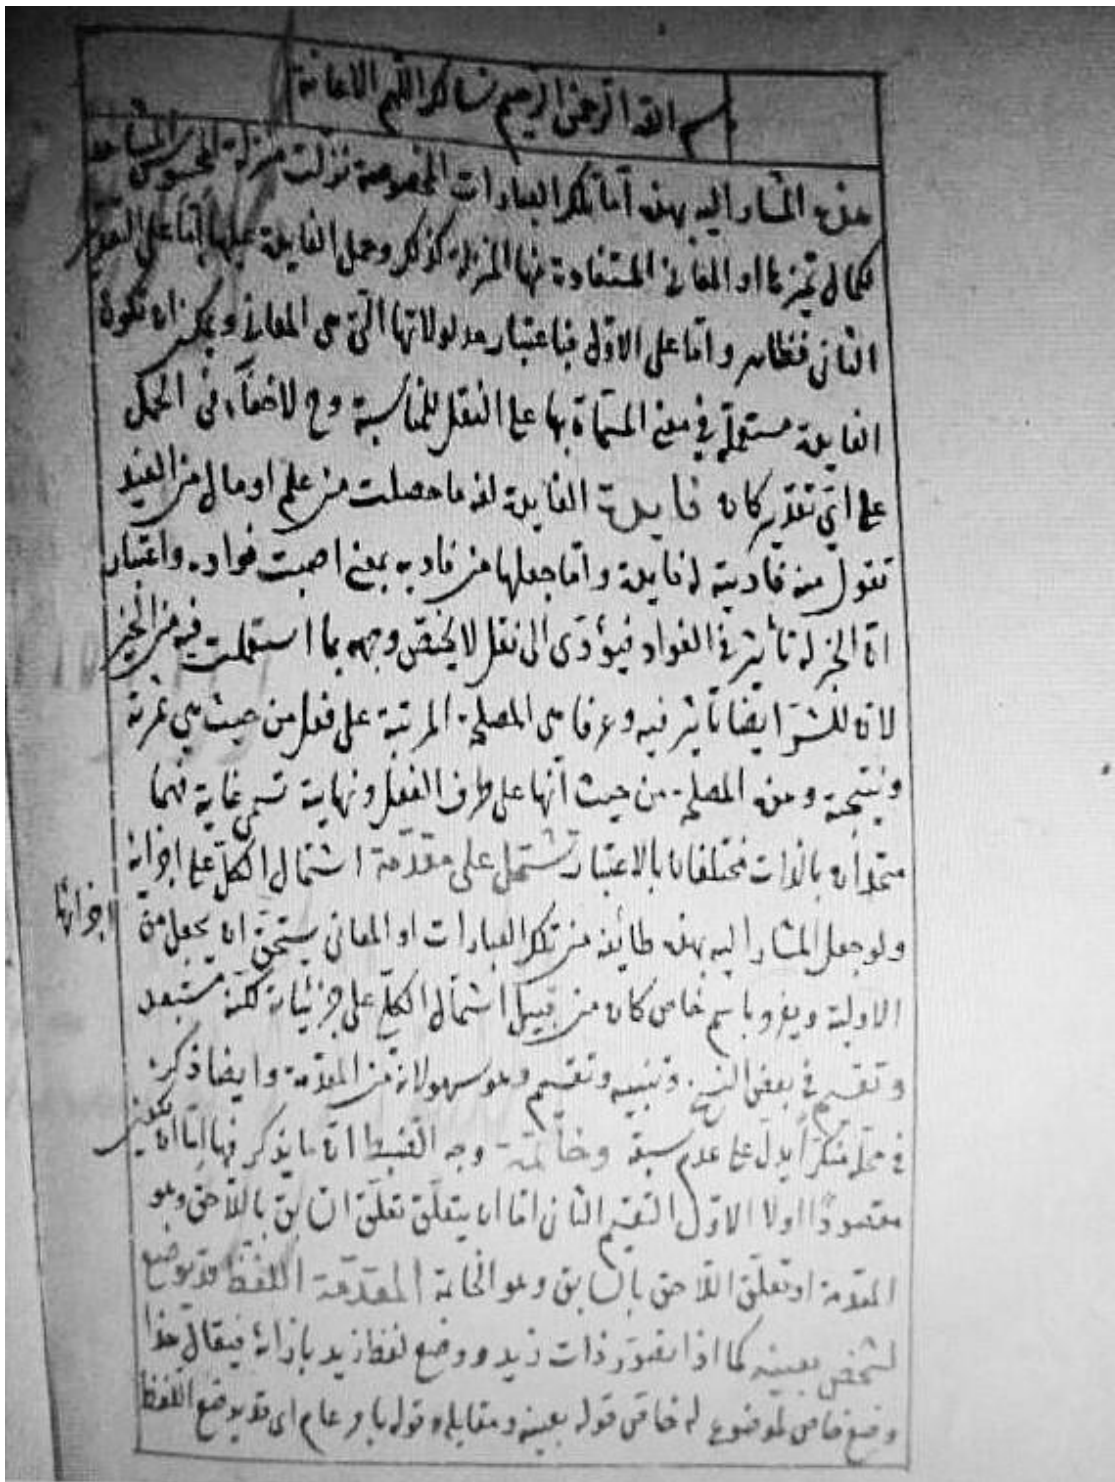 بسم الله الرحمن الرحيم نسألك اللهم الاعانة
هذه المشار اليه بهذه اما تلك العبارات المخصوصة نزلت منزلة المحسوس المشاهد
لكمال تميزها او المعاني المستفادة منها المنزلة كذلك وحمل الفايدة عليها اما على التقدير
الثاني فظاهر واما على الاول فباعتبار مدلولاتها التي هي المعاني ويمكن ان تكون
الفايدة مستعملة في معنى المسماة بها على النقل للمناسبة وح لاخفاء في الحمل
على اي تقدير كان فايدة الفايدة لغة ما حصلت من علم او مال من الفيد
تقول منه فادت له فايدة واما جعلها من فاديه بمعنى اصبت فواده واعتبار
ان الخبر له تأثير في الفواد فيؤدى الى نقل لا يختص وجهه بما استعملت فيه من الخير
لان للشر ايضا تاثير فيه وعرفا هي المصلحة المرتبة على فعل من حيث هي ثمرته
ونتيجته وهذه المصلحة من حيث انها على طرف الفعل ونهايته تسمى غاية فهما
متحدان بالذات مختلفان بالاعتبار تشتمل على مقدمة اشتمال الكل على اجزائه
اجزائها
ولو جعل المشار اليه بهذه طائفة من تلك العبارات او المعاني يستحق ان يجعل من
الاولية ويفرد باسم خاص كان من قبيل اشتمال الكلي على جزئياته لكنه مستبعد
وتقسيم في بعض النسخ وتنبيه وتقسيم وهو سهو لانه من المقدمة وايضا ذكره
في محله منكرا يدل على عدم سبقه وخاتمة وجه الضبط ان ما يذكر فيها اما ان يكون
مقصودا اولا الاول التقسيم الثاني اما ان يتعلق تعلق السابق باللاحق وهو
المقدمة او تعلق اللاحق بالسابق وهو الخاتمة المقدمة اللفظ قد يوضع
لشخص بعينه كما اذا تصور ذات زيد ووضع لفظ زيد بازائه فيقال هذا
وضع خاص لموضوع له خاص قوله بعينه ومقابله قوله بامر عام اى قد يوضع اللفظ